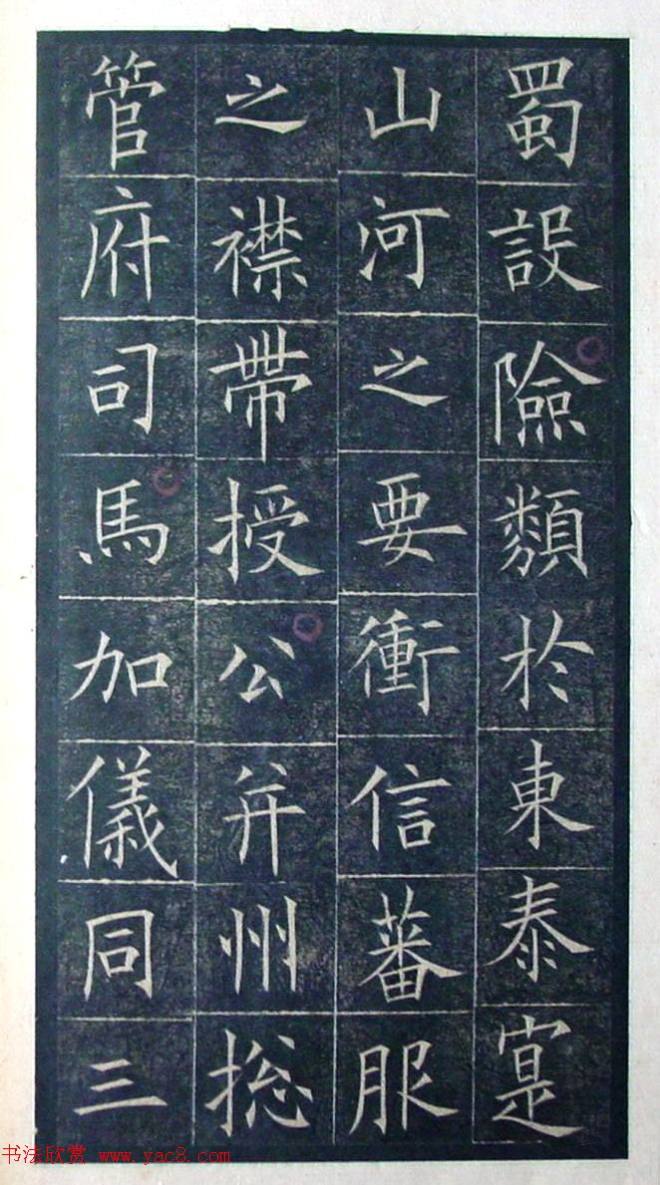 蜀設險類於東泰寔
山河之要衝信蕃服
之襟帶授公并州揔
管府司馬加儀同三
书法欣赏 www.yac8.com